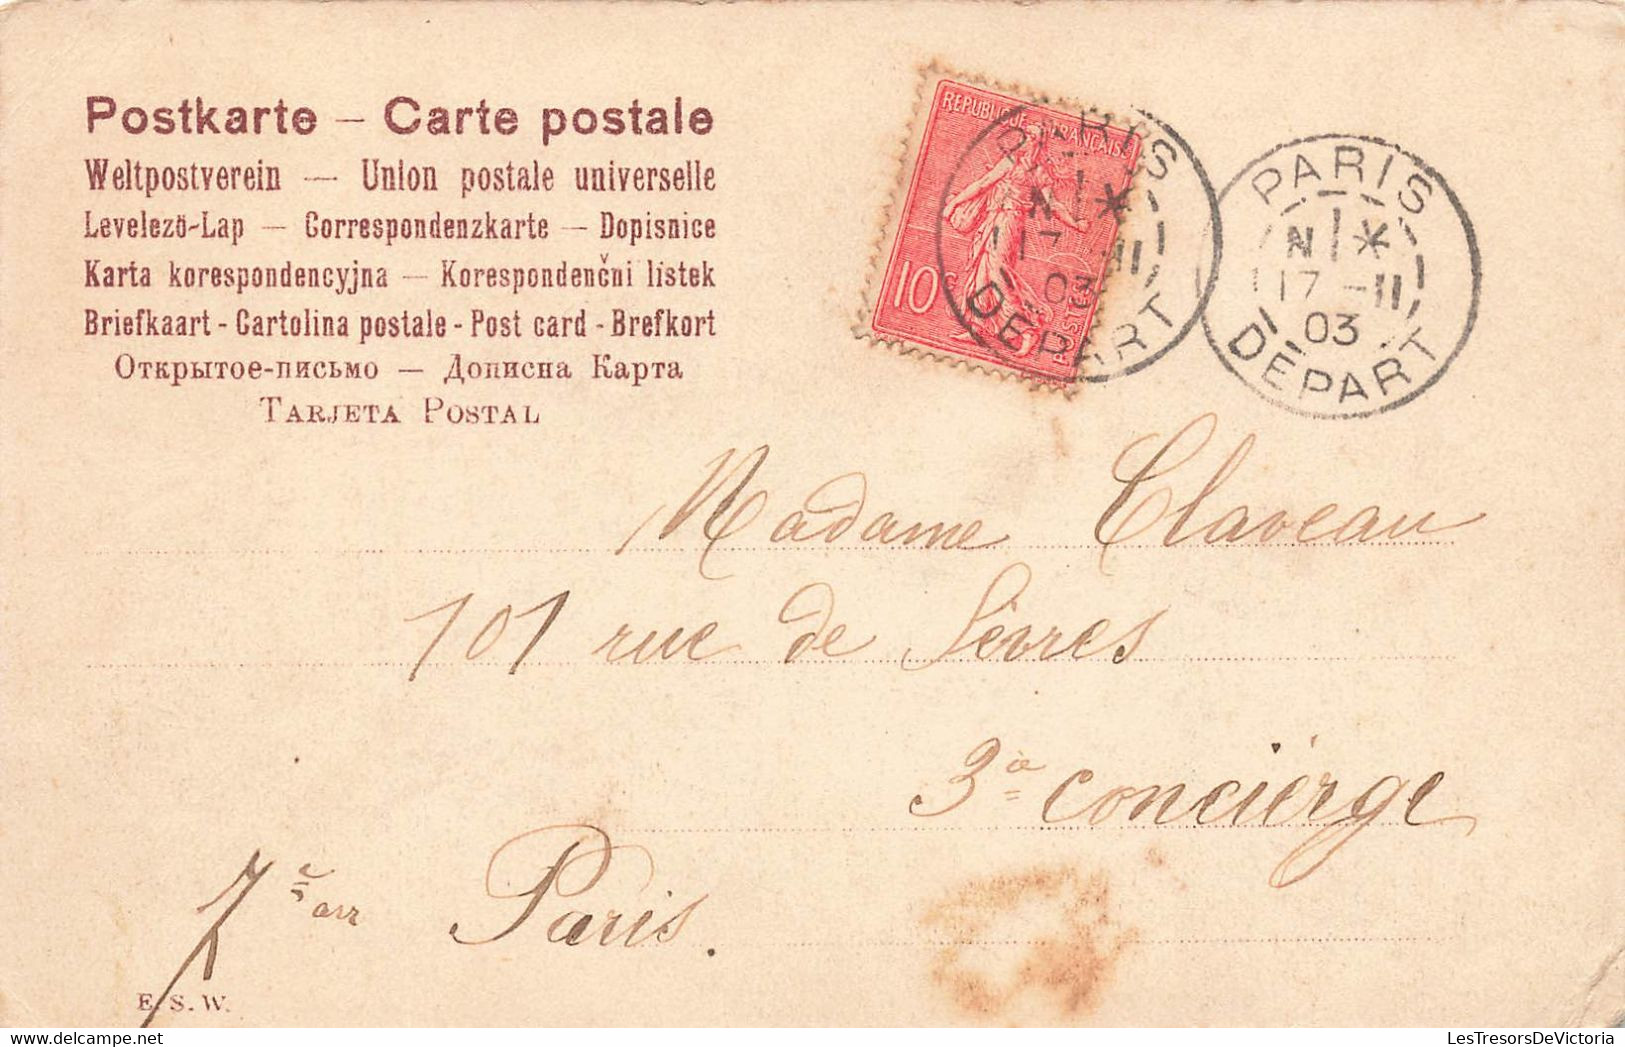 Postkarte – Carte postale
Weltpostverein — Union postale universelle
Levelező-Lap — Correspondenzkarte — Dopisnice
Karta korespondencyjna — Korespondenčni listek
Briefkaart - Cartolina postale - Post card - Brefkort
Открытое-письмо — Дописна Карта
Tarjeta Postal
REPUBLIQUE FRANÇAISE
10c
POSTES
PARIS
N *
17 -11
03
DEPART
PARIS
N *
17 -11
03
DEPART
Madame Claveau
101 rue de Sèvres
3e concierge
7e arr Paris.
E. S. W.
LesTresorsDeVictoria